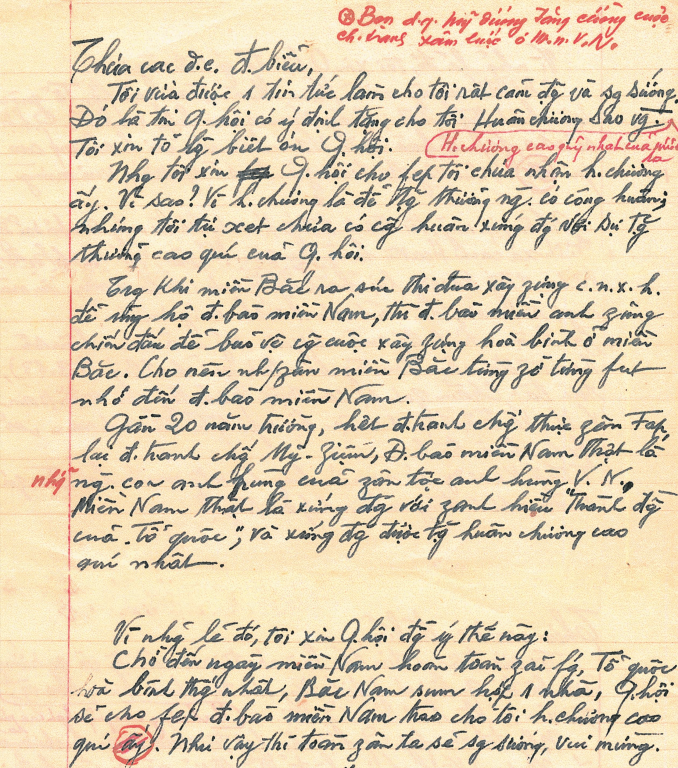 ⊛ Bọn đ.q. Mỹ đương tăng cường cuộc
ch.tranh xâm lược ở m.n. V.N.
Thưa các đ.c. đ.biểu,
Tôi vừa được 1 tin tức làm cho tôi rất cảm độ và sg sướng.
Đó là tin Q.hội có ý định tặng cho tôi Huân chương Sao vg.
Tôi xin tỏ lg biết ơn Q.hội.
H.chương cao quý nhất của nước
ta
Nhg tôi xin Q.hội cho fep tôi chưa nhận h.chương
ấy. Vì sao? Vì h.chương là để tặg thưởng ng. có công huân;
nhưng tôi tự xet chưa có cg huân xứng đg với sự tg
thưởng cao quí của Q.hội.
Trg khi miền Bắc ra sức thi đua xây zựng c.n.x.h.
để ủng hộ đ.bào miền Nam, thì đ.bào miền anh zũng
chiến đấu để bảo vệ cg cuộc xây zựng hoà bình ở miền
Bắc. Cho nên nh/zân miền Bắc từng zờ từng fut
nhớ đến đ.bào miền Nam.
Gần 20 năm trường, hết đ.tranh chg thực zân Fap,
lại đ.tranh chg Mỹ-Ziệm, Đ.bào miền Nam thật là
nhg
ng. con anh hùng của zân tộc anh hùng V.N.,
Miền Nam thật là xứng đg với zanh hiệu "Thành đg
của Tổ quốc", và xứng đg được tg huân chương cao
quí nhất.
Vì nhg lẽ đó, tôi xin Q.hội đg ý thế này:
Chờ đến ngày miền Nam hoàn toàn zải fg, Tổ quốc
hoà bình thg nhất, Bắc Nam sum họp 1 nhà, Q.hội
sẽ cho fep đ.bào miền Nam trao cho tôi h.chương cao
quí ấy. Như vậy thì toàn zân ta sẽ sg sướng, vui mừng.